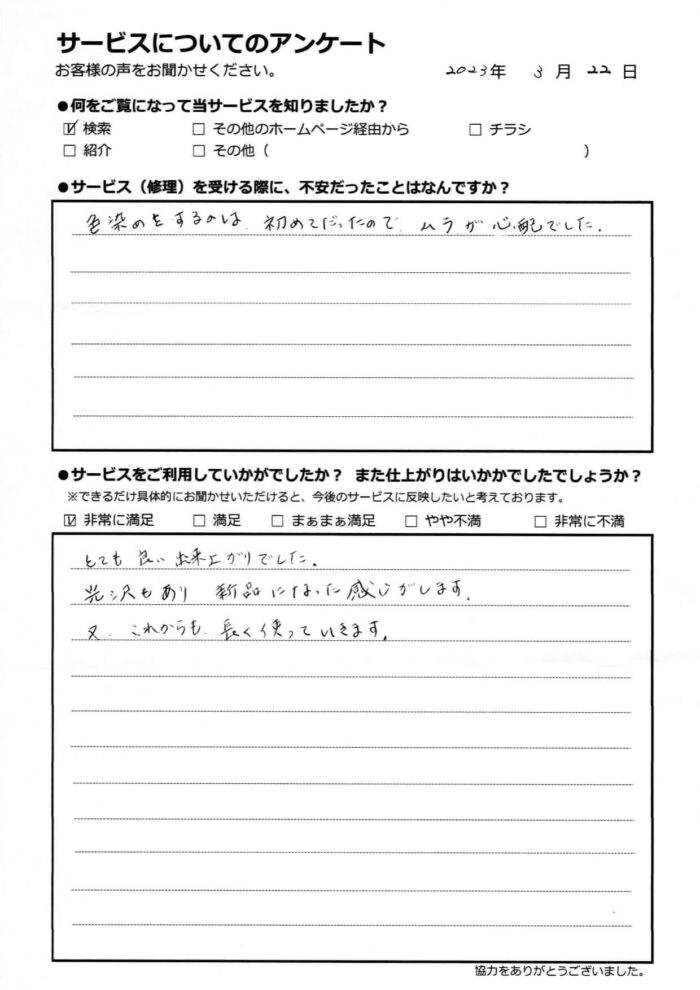 サービスについてのアンケート
お客様の声をお聞かせください。 2023年 3月 22日
●何をご覧になって当サービスを知りましたか？
☑ 検索 □ その他のホームページ経由から □ チラシ
□ 紹介 □ その他（ ）
●サービス（修理）を受ける際に、不安だったことはなんですか？
色染めをするのは、初めてだったので、ムラが心配でした。
●サービスをご利用していかがでしたか？ また仕上がりはいかかでしたでしょうか？
※できるだけ具体的にお聞かせいただけると、今後のサービスに反映したいと考えております。
☑ 非常に満足 □ 満足 □ まぁまぁ満足 □ やや不満 □ 非常に不満
とても良い出来上がりでした。
光沢もあり 新品になった感じがします。
又、これからも、長く使っていきます。
協力をありがとうございました。